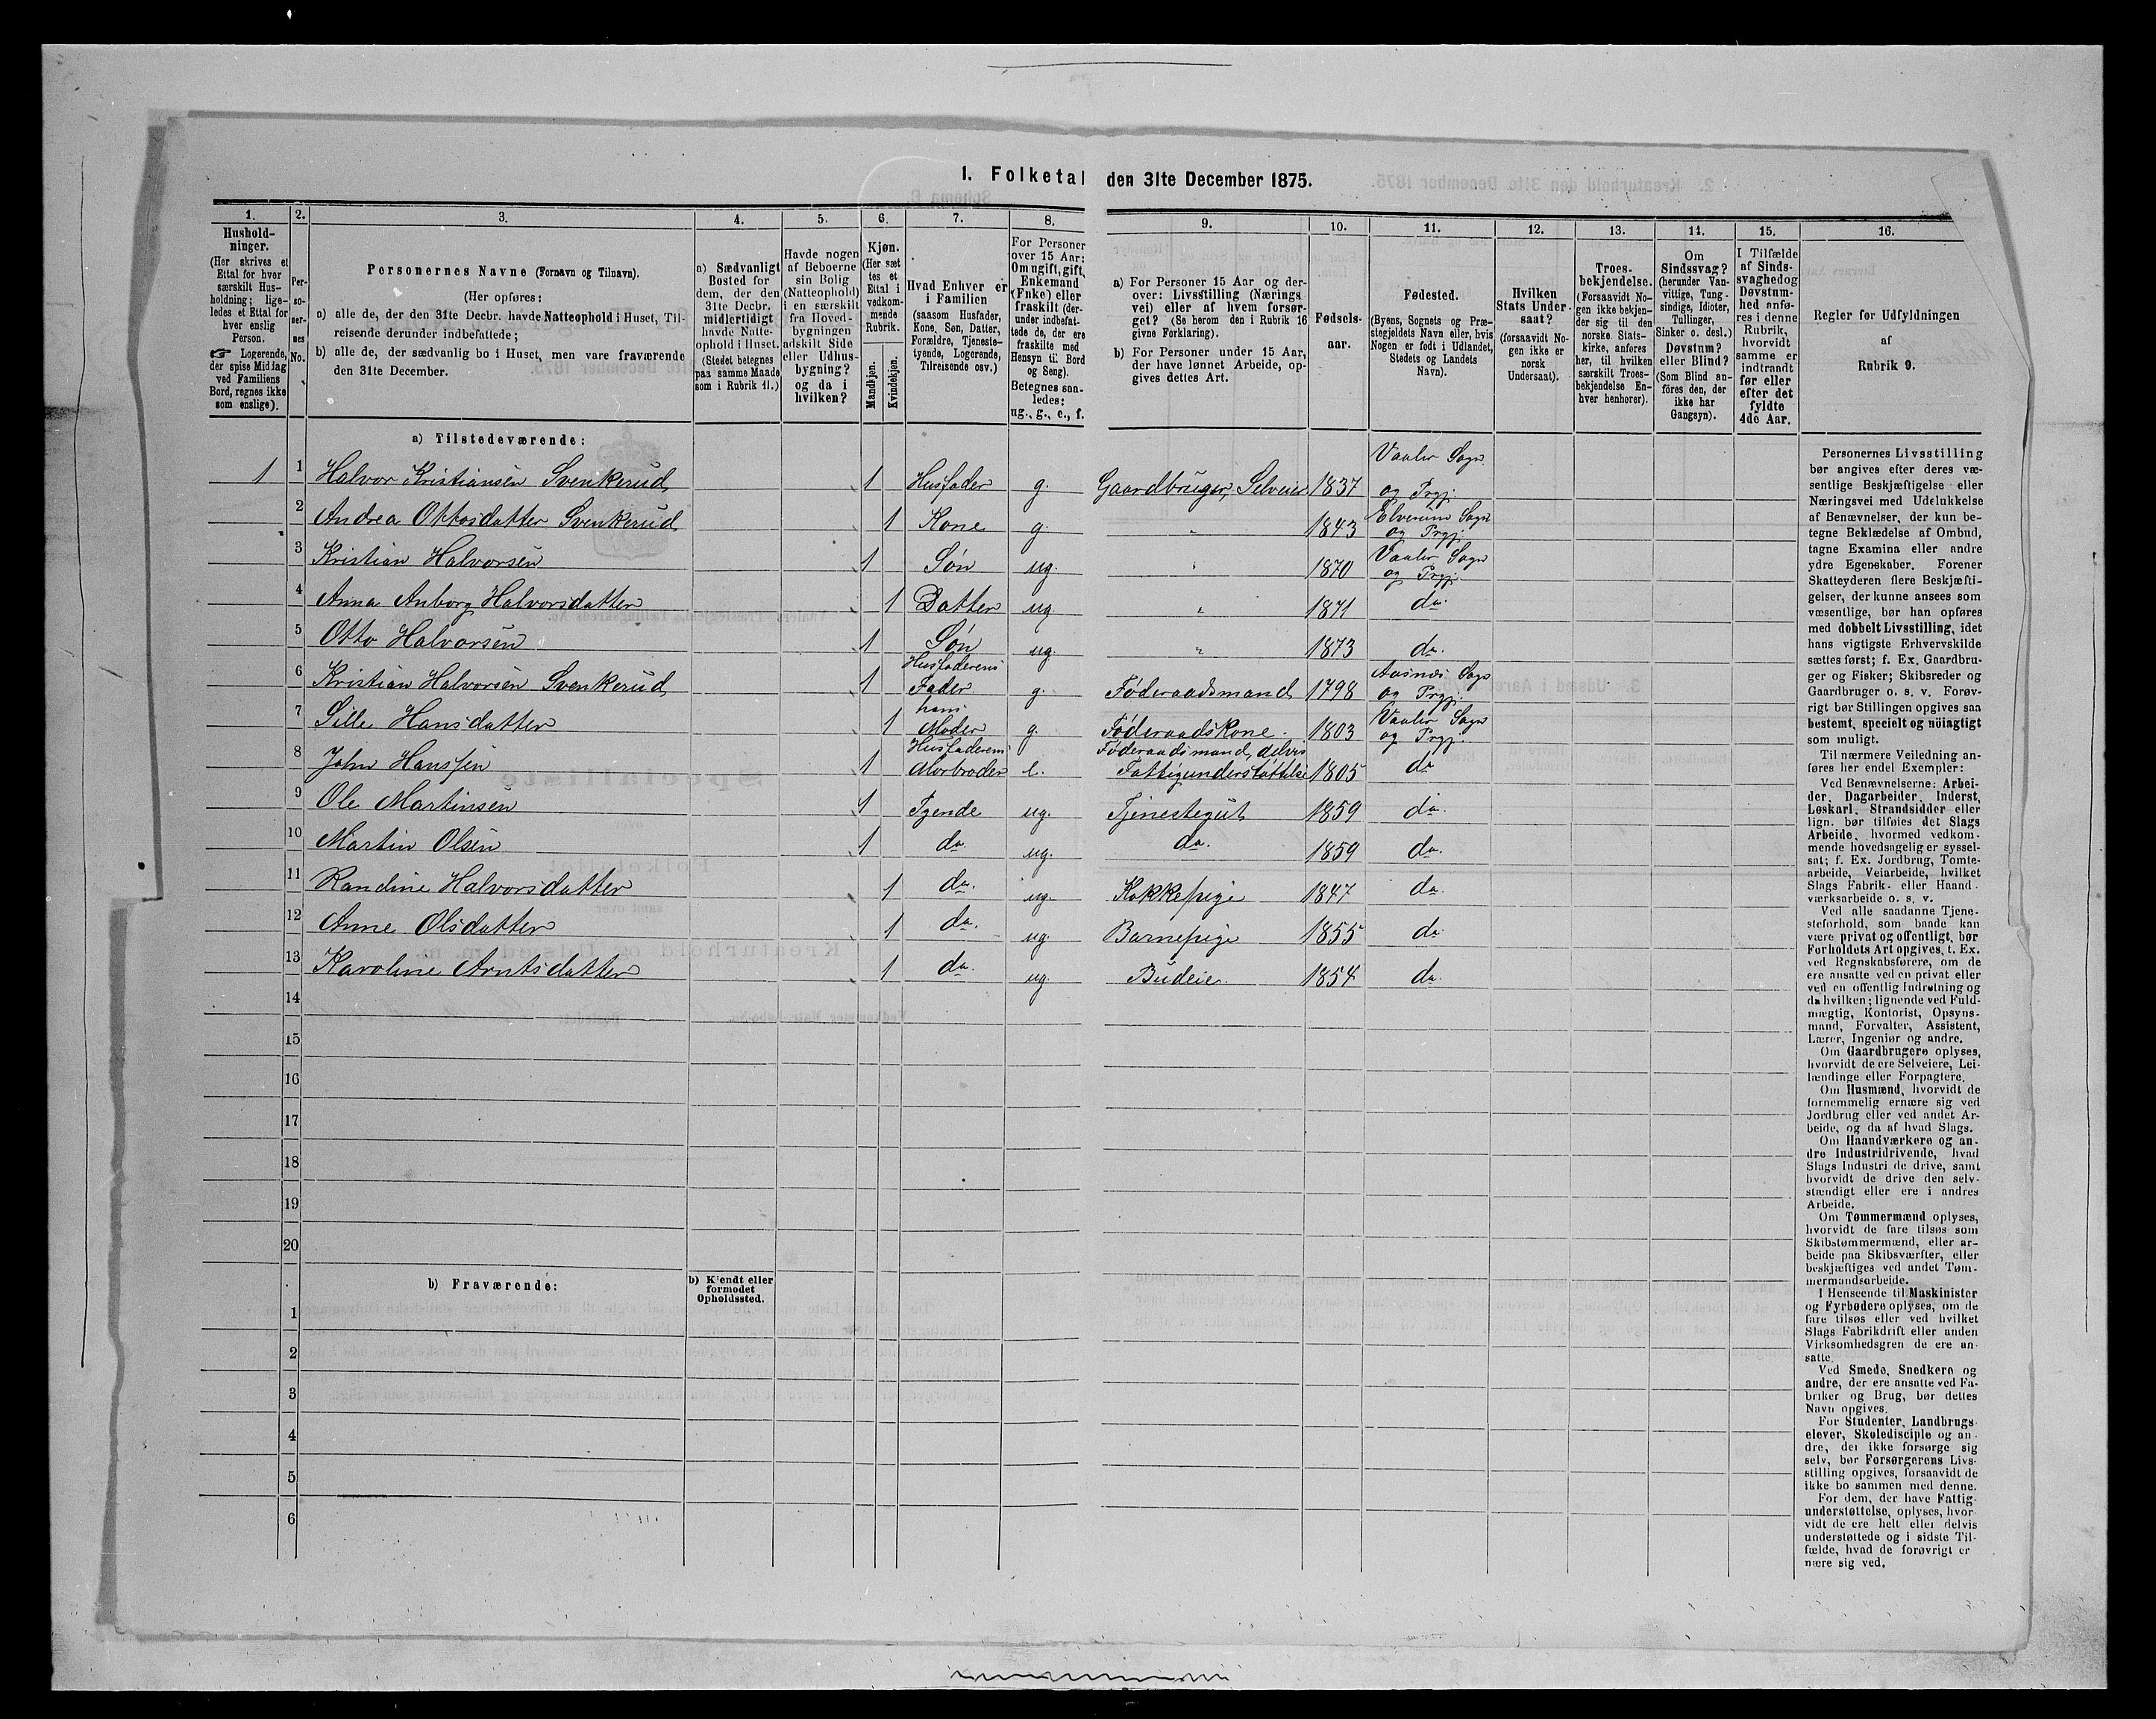 1. Folketal den 31te December 1875.
1. 2. 3. 4. 5. 6. 7. 8. 9. 10. 11. 12. 13. 14. 15. 16.
Hushold-
ninger.
(Her skrives et
Ettal for hver
særskilt Hus-
holdning; lige-
ledes et Ettal for
hver enslig
Person.
☞ Logerende,
der spise Middag
ved Familiens
Bord, regnes ikke
som enslige).
Per-
so-
ner-
nes
No.
Personernes Navne (Fornavn og Tilnavn).
(Her opføres:
a) alle de, der den 31te Decbr. havde Natteophold i Huset, Til-
reisende derunder indbefattede;
b) alle de, der sædvanlig bo i Huset, men vare fraværende
den 31te December.
a) Sædvanligt
Bosted for
dem, der den
31te Decbr.
midlertidigt
havde Natte-
ophold i Huset.
(Stedet betegnes
paa samme Maade
som i Rubrik 11.)
Havde nogen
af Beboerne
sin Bolig
(Natteophold)
i en særskilt
fra Hoved-
bygningen
adskilt Side
eller Udhus-
bygning?
og da i
hvilken?
Kjøn.
(Her sæt
tes et
Ettal i
vedkom-
mende
Rubrik.
Mandkjøn.
Kvindekjøn.
Hvad Enhver er
i Familien
(saasom Husfader,
Kone, Søn, Datter,
Forældre, Tjeneste-
tyende, Logerende,
Tilreisende osv.)
For Personer
over 15 Aar:
Om ugift, gift,
Enkemand
(Enke) eller
fraskilt (der-
under indbefat-
tede de, der ere
fraskilte med
Hensyn til Bord
og Seng).
Betegnes saa-
ledes:
ug., g., e., f.
a) For Personer 15 Aar og der-
over: Livsstilling (Nærings
vei) eller af hvem forsør-
get? (Se herom den i Rubrik 16
givne Forklaring).
b) For Personer under 15 Aar,
der have lønnet Arbeide, op-
gives dettes Art.
Fødsels-
aar.
Fødested.
(Byens, Sognets og Præ-
stegjeldets Navn eller, hvis
Nogen er født i Udlandet,
Stedets og Landets
Navn).
Hvilken
Stats Under-
saat?
(forsaavidt No-
gen ikke er
norsk
Undersaat).
Troes-
bekjendelse.
(Forsaavidt No-
gen ikke bekjen-
der sig til den
norske Stats-
kirke, anføres
her, til hvilken
særskilt Troes-
bekjendelse En-
hver henhører).
Om
Sindssvag?
(herunder Van-
vittige, Tung-
sindige, Idioter,
Tullinger,
Sinker o. desl.)
Døvstum?
eller Blind?
(Som Blind an-
føres den, der
ikke har
Gangsyn).
I Tilfælde
af Sinds-
svaghed og
Døvstum-
hed anfø-
res i denne
Rubrik,
hvorvidt
samme er
indtraadt
før eller
efter det
fyldte
4de Aar.
Regler for Udfyldningen
af
Rubrik 9.
a) Tilstedeværende:
1 1 Halvor Kristiansen Svenkerud 1 Husfader g. Gaardbruger, Selveier 1837 Vaaler Sogn og Prgj.
2 Andrea Ottosdatter Svenkerud 1 Kone g. " 1843 Elverum Sogn og Prgj.
3 Kristian Halvorsen 1 Søn ug. " 1870 Vaaler Sogn og Prgj.
4 Anna Anborg Halvorsdatter 1 Datter ug " 1871 do.
5 Otto Halvorsen 1 Søn ug " 1873 do.
6 Kristian Halvorsen Svenkerud 1 Husfaderens Fader g. Føderaadsmand 1798 Aasnes Sogn og Prgj.
7 Sille Hansdatter 1 hans Moder g. Føderaadskone. 1803 Vaaler Sogn og Prgj.
8 John Hanssen 1 Husfaderens Morbroder e. Føderaadsmand, delvis Fattigunderstøttelse 1805 do
9 Ole Martinsen 1 Tyende ug. Tjenestegut 1859 do.
10 Martin Olsen 1 do. ug. do. 1859 do.
11 Randine Halvorsdatter 1 do. ug. Kokkepige 1847 do.
12 Anne Olsdatter 1 do. ug. Barnepige 1855 do
13 Karoline Arntsdatter 1 do. ug Budeie. 1854 do.
14
15
16
17
18
19
20
b) Fraværende:
b) Kjendt eller
formodet
Opholdssted.
1
2
3
4
5
6
Personernes Livsstilling
bør angives efter deres væ-
sentlige Beskjæftigelse eller
Næringsvei med Udelukkelse
af Benævnelser, der kun be-
tegne Beklædelse af Ombud,
tagne Examina eller andre
ydre Egenskaber. Forener
Skatteyderen flere Beskjæfti-
gelser, der kunne ansees som
væsentlige, bør han opføres
med dobbelt Livsstilling, idet
hans vigtigste Erhvervskilde
sættes først; f. Ex. Gaardbru-
ger og Fisker; Skibsreder og
Gaardbruger o. s. v. Forøv-
rigt bør Stillingen opgives saa
bestemt, specielt og nøiagtigt
som muligt.
Til nærmere Veiledning an-
føres her endel Exempler:
Ved Benævnelserne: Arbei-
der, Dagarbeider, Inderst,
Løskarl, Strandsidder eller
lign. bør tilføies det Slags
Arbeide, hvormed vedkom-
mende hovedsagelig er syssel-
sat; f. Ex. Jordbrug, Tomte-
arbeide, Veiarbeide, hvilket
Slags Fabrik- eller Haand-
værksarbeide o. s. v.
Ved alle saadanne Tjene-
steforhold, som baade kan
være privat og offentligt, bør
Forholdets Art opgives, t. Ex.
ved Regnskabsførere, om de
ere ansatte ved en privat eller
ved en offentlig Indretning og
da hvilken; lignende ved Fuld-
mægtig, Kontorist, Opsyns-
mand, Forvalter, Assistent,
Lærer, Ingeniør og andre.
Om Gaardbrugere oplyses,
hvorvidt de ere Selveiere, Lei-
lændinge eller Forpagtere.
Om Husmænd, hvorvidt de
fornemmelig ernære sig ved
Jordbrug eller ved andet Ar-
beide, og da af hvad Slags.
Om Haandværkere og an-
dre Industridrivende, hvad
Slags Industri de drive, samt
hvorvidt de drive den selv-
stændigt eller ere i andres
Arbeide.
Om Tømmermænd oplyses,
hvorvidt de fare tilsøs som
Skibstømmermænd, eller ar-
beide paa Skibsværfter, eller
beskjæftiges ved andet Tøm-
mermandsarbeide.
I Henseende til Maskinister
og Fyrbødere oplyses, om de
fare tilsøs eller ved hvilket
Slags Fabrikdrift eller anden
Virksomhedsgren de ere an-
satte.
Ved Smede, Snedkere og
andre, der ere ansatte ved Fa-
briker og Brug, bør dettes
Navn opgives.
For Studenter, Landbrugs-
elever, Skoledisciple og an-
dre, der ikke forsørge sig
selv, bør Forsørgerens Livs-
stilling opgives, forsaavidt de
ikke bo sammen med denne.
For dem, der have Fattig-
understøttelse, oplyses, hvor-
vidt de ere helt eller delvis
understøttede og i sidste Til-
fælde, hvad de forøvrigt er-
nære sig ved.